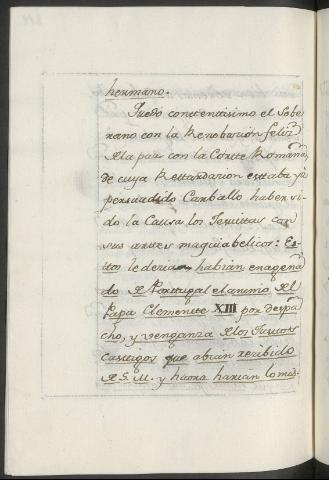 hermano.
Quedó contentissimo el Sobe
rano con la Renobacion feliz
de la paz con la Corte Romana,
de cuya Retardacion estaba ya
persuadido Carballo haber si
do la Causa los Jesuitas con
sus artes maquiabelicos: Es
tos le decia habian enagena
do de Portugal el animo del
Papa Clemente XIII por despa
cho, y venganza de los Justos
Castigos que abian recibido
de S. M. y haora harian lo mas.